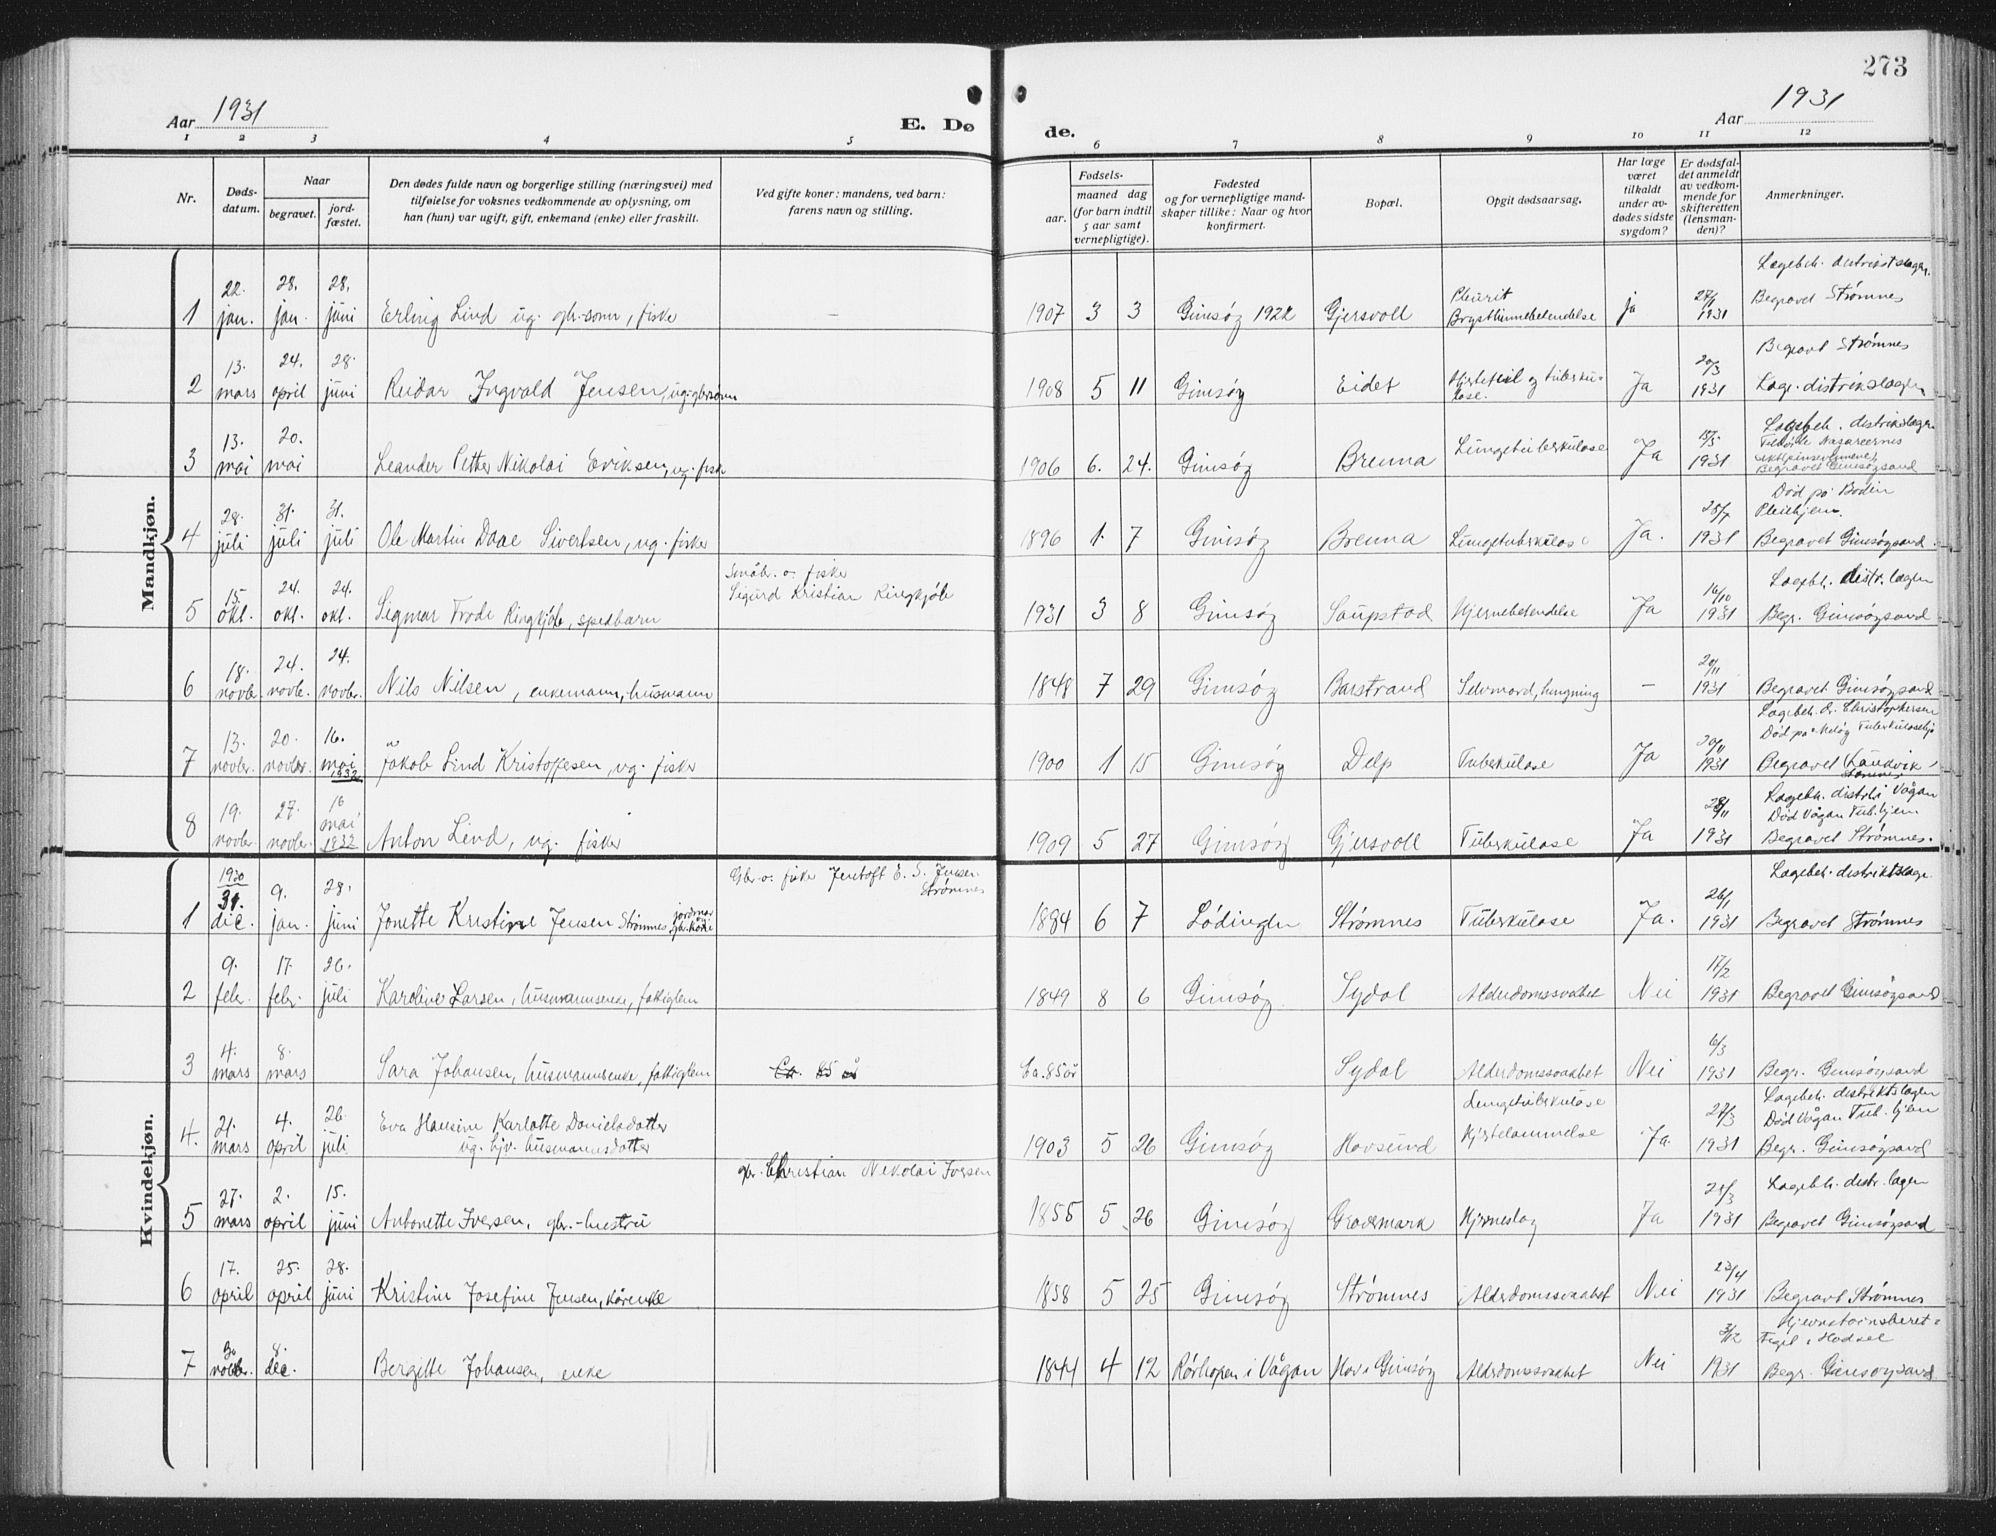 273
Aar 1931
E. Dø
de.
Aar 1931
1 2 3 4 5 6 7 8 9 10 11 12
Nr.
Døds-
datum.
Naar
begravet.
jord-
fæstet.
Den dødes fulde navn og borgerlige stilling (næringsvei) med
tilføielse for voksnes vedkommende av oplysning, om
han (hun) var ugift, gift, enkemand (enke) eller fraskilt.
Ved gifte koner: mandens, ved barn:
farens navn og stilling.
Fødsels-
aar.
maaned dag
(for barn indtil
5 aar samt
vernepligtige).
Fødested
og for vernepligtige mand-
skaper tillike: Naar og hvor
konfirmert.
Bopæl.
Opgit dødsaarsag.
Har læge
været
tilkaldt
under av-
dødes sidste
sygdom?
Er dødsfal-
det anmeldt
av vedkom-
mende for
skifteretten
(lensman-
den)?
Anmerkninger.
Mandkjøn.
22. 28. 28. Lægebeh. distriktslægen
1 jan. jan. juni Erling Lind ug. gbr-sønn, fisker — 1907 3 3 Gimsøy 1922 Gjersvoll Pleurit Brysthinnebetendelse ja 27/1 1931 Begravet Strømnes
13. 24. 28. Begravet Strømnes
2 mars april juni Reidar Ingvald Jensen, ug. gbrsønn 1908 5 11 Gimsøy Eidet Hjertefeil og tuberku-
lose. Ja 20/3 1931 Læg. distriktslægen
13. 20. Lægebeh. distriktslægen
3 mai mai Leander Petter Nikolai Eriksen, ug. fisker 1906 6. 24. Gimsøy Brenna Lungetuberkulose Ja 15/5 1931 Tilhørte Nasareernes
Begravet Gimsøysand
28. 31. 31. Død på Bodin
Pleiehjem.
4 juli juli juli Ole Martin Daae Sivertsen, ug. fisker 1896 1. 7 Gimsøy Brenna Lungetuberkulose Ja. 1931 Begravet Gimsøysand.
Småbr. o. fisker
15. 24. 24. Sigurd Kristian Ringkjøb Lægebh. distr. lægen
5 okt. okt. okt. Segmar Frode Ringkjøb, spedbarn 1931 3 8 Gimsøy Saupstad Hjernebetendelse Ja 16/10 1931 Begr. Gimsøysand
18. 24. 24.
6 novbr. novbr. novbr. Nils Nilsen, enkemann, husmann 1848 7 29 Gimsøy Barstrand Selvmord, hengning — 20/11 1931 Begravet Gimsøysand
Lægebeh. dr. Christophersen
13. 20. 16. Død på Tuberkulosehj
7 novbr. novbr. mai 1932 Jakob Lind Kristoffesen, ug. fisker 1900 1 15 Gimsøy Delp Tuberkulose Ja 20/11 1931 Begravet
19. 27. 16 Lægebeh. distrl. i Vågan
Død Vågan Tub. hjem
8 novbr. novbr. mai 1932 Anton Lind, ug. fisker 1909 5 27 Gimsøy Gjersvoll Tuberkulose Ja 28/11 1931 Begravet Strømnes.
Kvindekjøn.
1930 Gbr. o. fisker Jentoft E. S. Jensen
Strømnes Lægebeh. distriktslæge
31. 9. 28.
1 dec. jan. juni Jonette Kristine Jensen Strømnes jordmor og gbr. kone 1884 6 7 Lødingen Strømnes Tuberkulose Ja. 26/1 1931 Begravet Strømnes
9. 17. 26.
2 febr. febr. juli Karoline Larsen, husmannsenke, fattiglem 1849 8 6 Gimsøy Sydal Alderdomssvakhet Nei 17/2 1931 Begravet Gimsøysand
4. 8.
3 mars mars Sara Johansen, husmannsenke, fattiglem Ca. 85 år Ca. 85 år Sydal Alderdomssvakhet Nei 6/3 1931 Begr. Gimsøysand
21. 4. 26. Lungetuberkulose Lægebeh. distriktslægen
4. mars april juli Eva Hansine Karlotte Danielsdatter
ug. hjv. husmannsdatter 1903 5 26 Gimsøy Hovsund Hjertelammelse Ja. 27/3 1931 Død Vågan Tub. hjem
Begr. Gimsøysand
gbr. Christian Nikolai Iversen
27. 2. 15. Lægebh. distr. lægen
5 mars april juni Antonette Iversen, gbr.-hustru 1855 5 26 Gimsøy Gravermark Hjerneslag Ja 1931 Begravet Gimsøysand
17. 25. 28.
6 april april juni Kristine Josefine Jensen, kårenke 1858 5 25 Gimsøy Strømnes Alderdomssvakhet Nei 22/4 1931 Begravet Strømnes
30 8.
7 novbr. dec. Bergitte Johansen, enke 1844 4 12 Rørhopen i Vågan Hov i Gimsøy Alderdomssvakhet Nei 3/12 1931 Hjemstavnsberet-
tiget i Hadsel
Begr. Gimsøysand